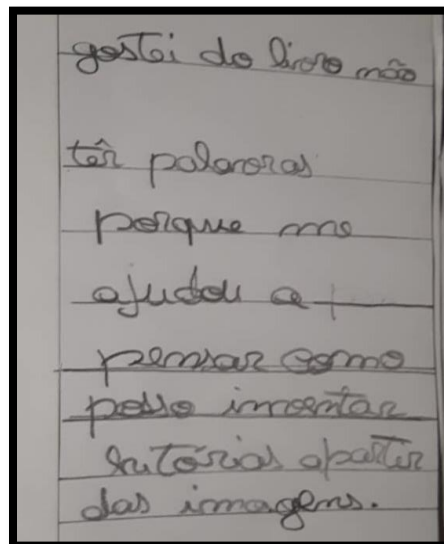 gostei do livro não
têr palavras
porque me
ajudou a
pensar como
posso inventar
histórias apartir
das imagens.